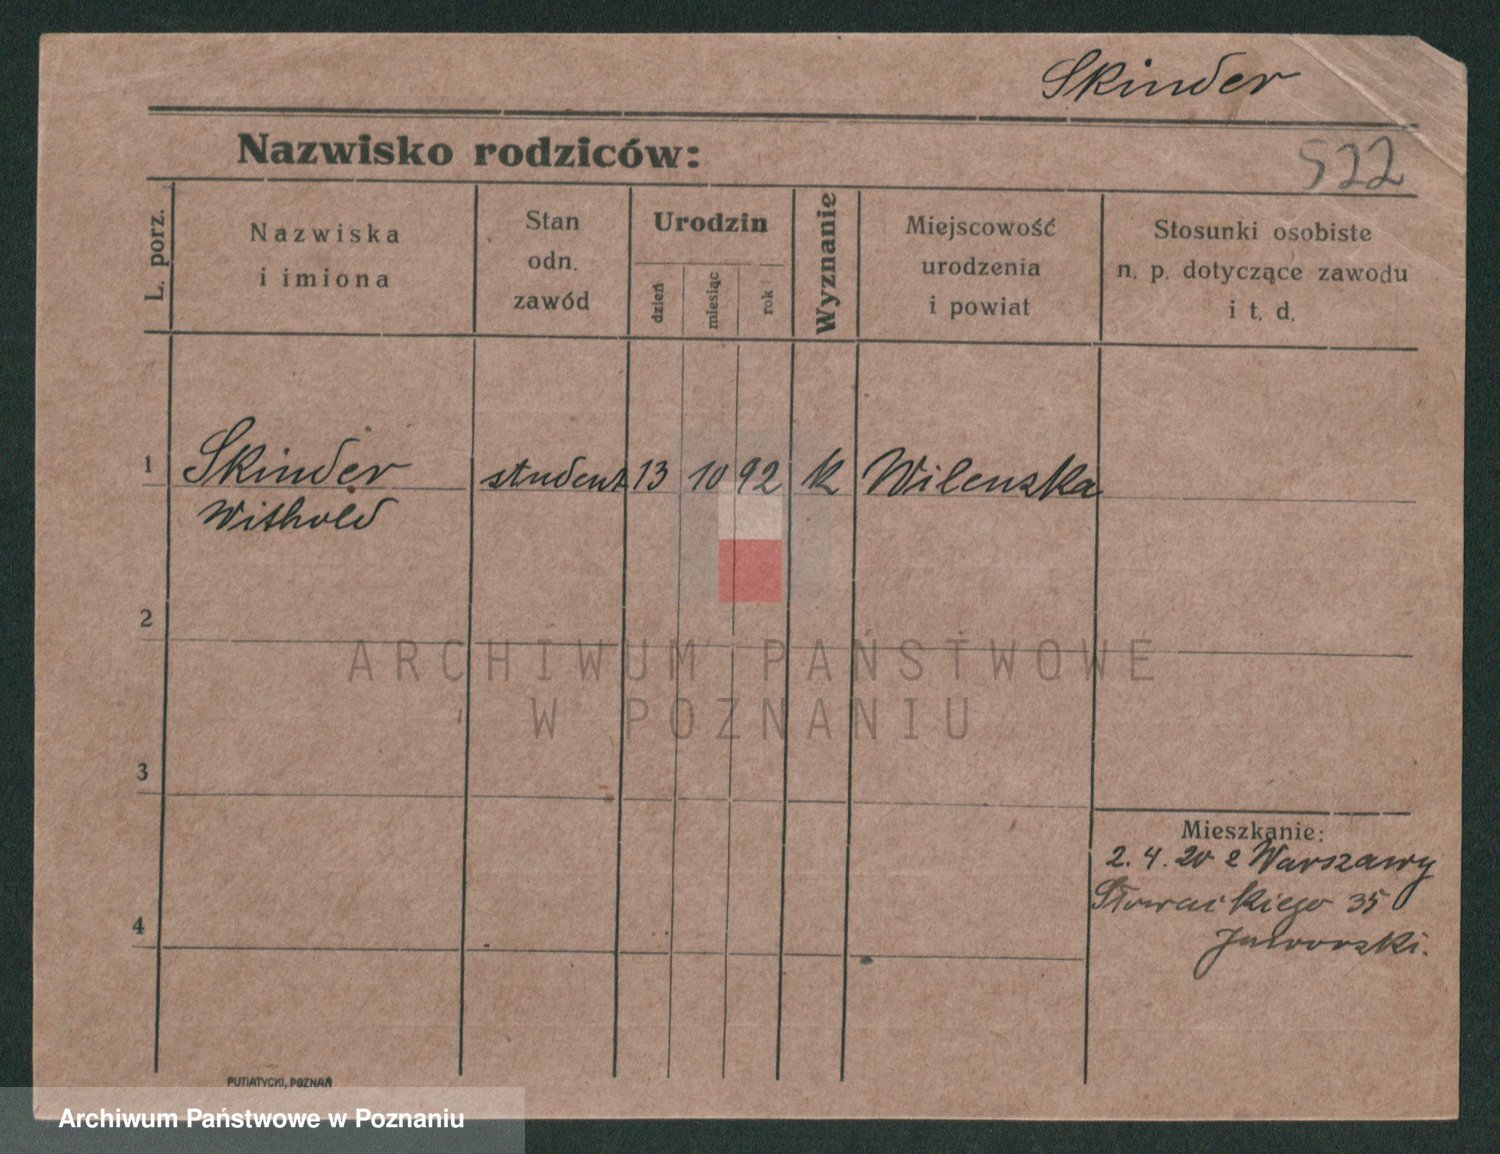 Skinder
Nazwisko rodziców:
522
L. porz.
Nazwiska
i imiona
Stan
odn.
zawód
Urodzin
dzień
miesiąc
rok
Wyznanie
Miejscowość
urodzenia
i powiat
Stosunki osobiste
n. p. dotyczące zawodu
i t. d.
1
Skinder student 13 10 92 k Wilenska
Withold
2
ARCHIWUM PAŃSTWOWE
W POZNANIU
3
Mieszkanie:
2.4.20 z Warszawy
Słowackiego 35
4
Jaworski.
PUTIATYCKI, POZNAŃ
Archiwum Państwowe w Poznaniu